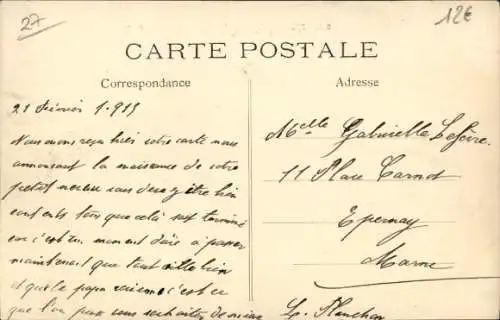 27
12€
CARTE POSTALE
Correspondance
Adresse
21 Février 1.915
Nous avons reçu hier votre carte nous
annonsant la naissance de votre
petit neveu vous devez être bien
contents tous que cela soit terminé
car c'est un moment dûre à passer
maintenant que tout aille bien
et que le papa revienne c'est ce
que l'on peux vous souhaiter de mieux
Melle Gabrielle Lefèvre.
11 Place Carnot
Epernay
Marne
L.